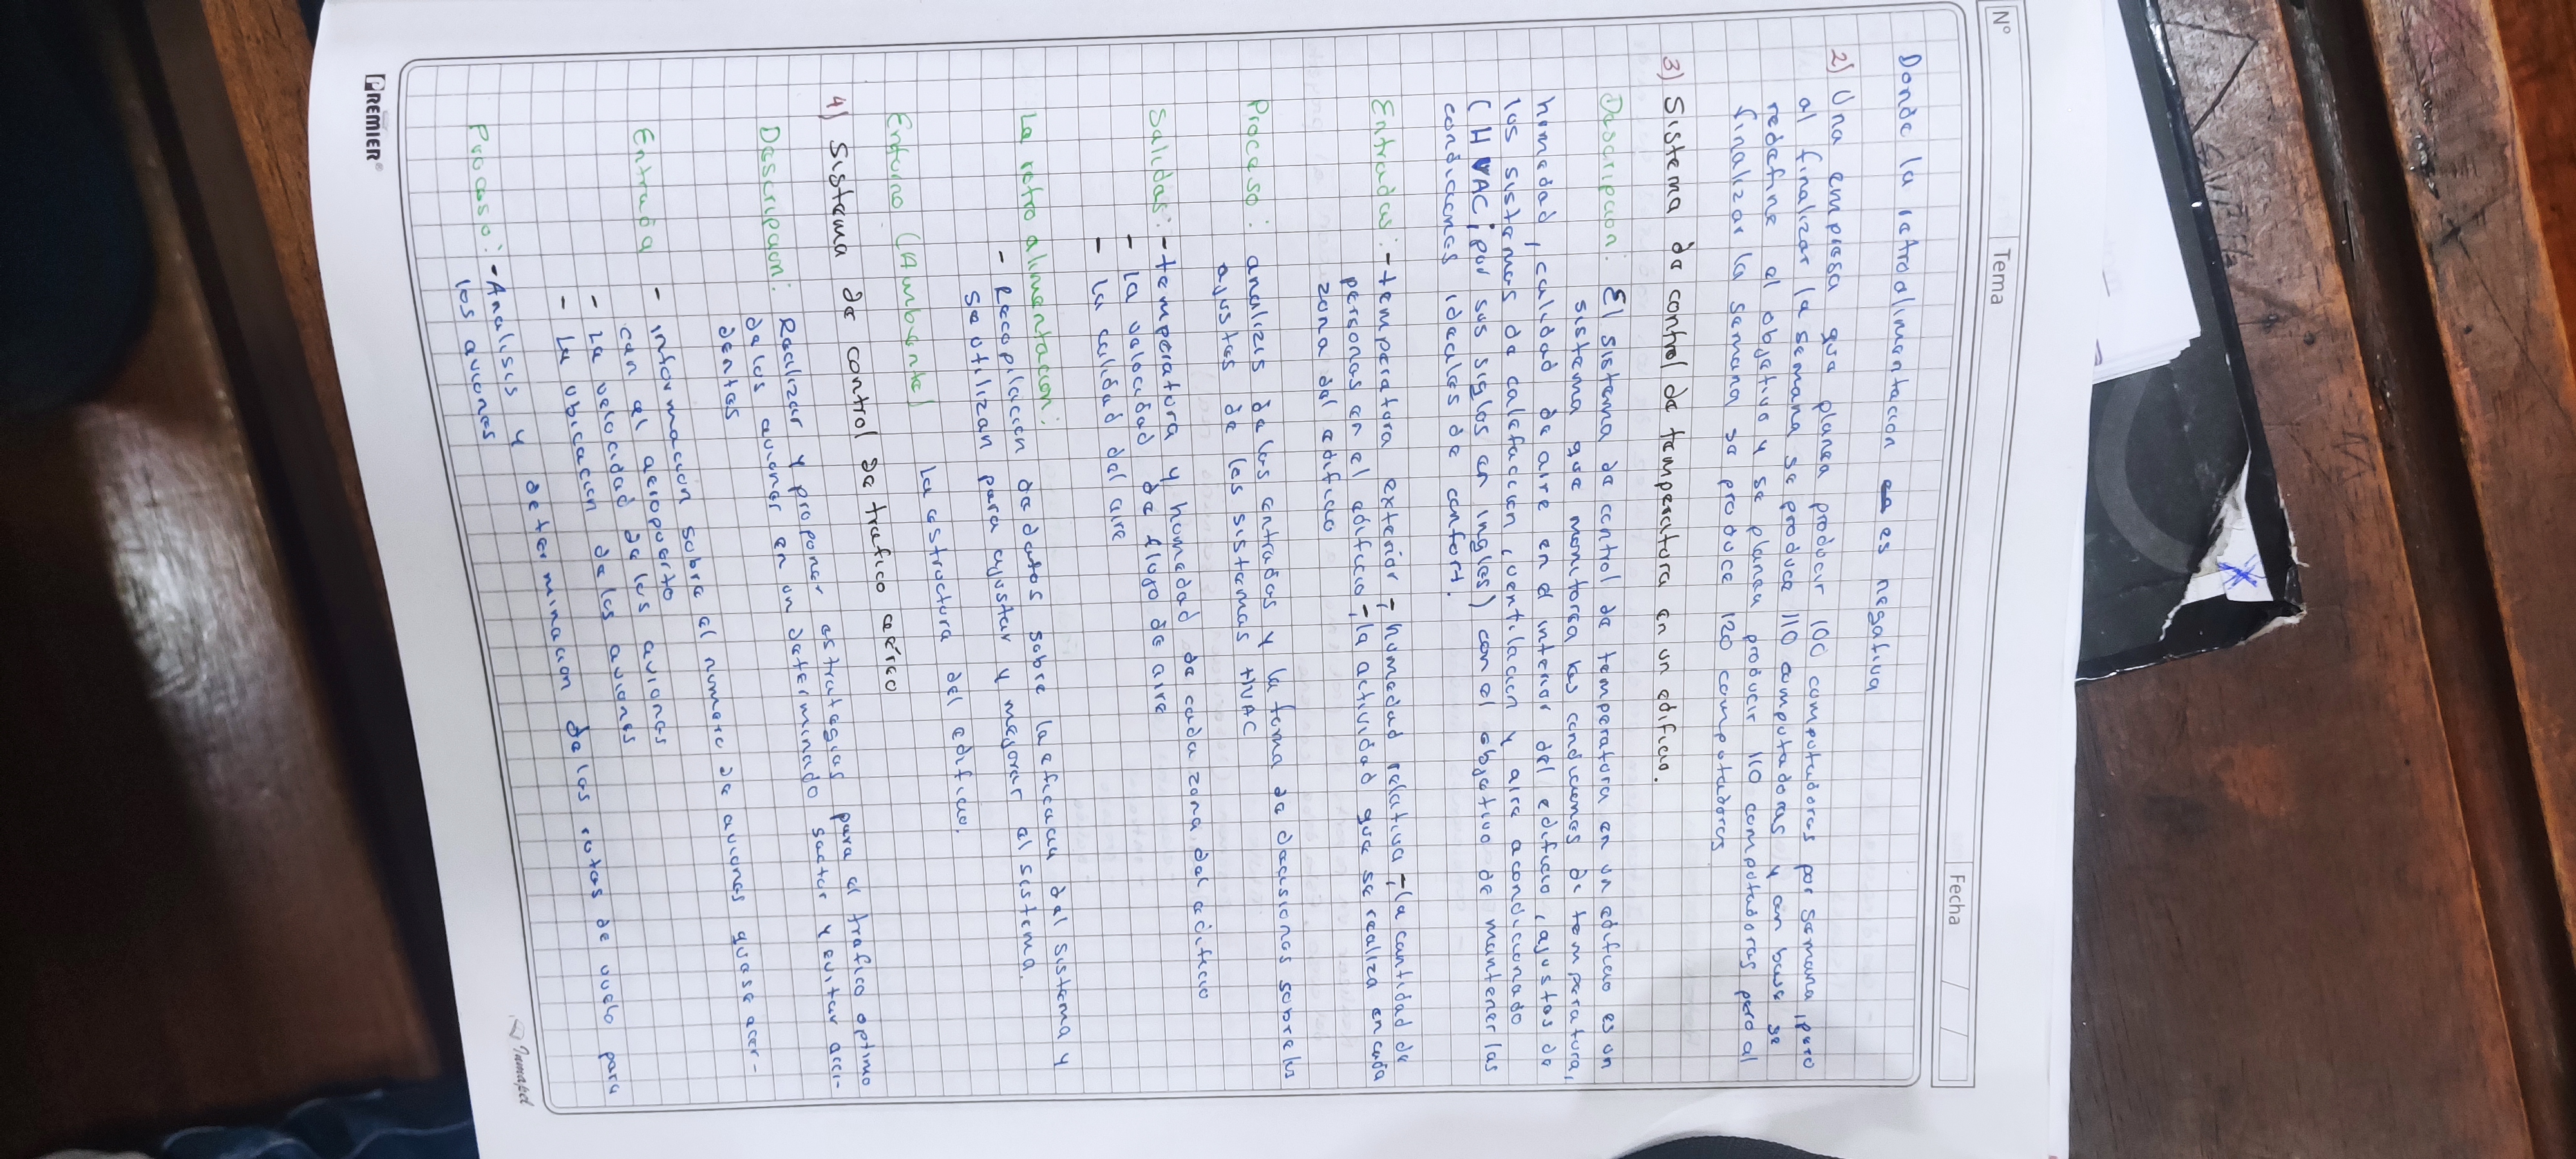 Nº Tema Fecha
Donde la retroalimentación es negativa
2) Una empresa que planea producir 100 computadoras por semana, pero
al finalizar la semana se produce 110 computadoras y en base se
redefine el objetivo y se planea producir 110 computadoras pero al
finalizar la semana se produce 120 computadores
3) Sistema de control de temperatura en un edificio.
Descripcion: El sistema de control de temperatura en un edificio es un
sistema que monitorea las condiciones de temperatura,
humedad, calidad de aire en el interior del edificio, ajustes de
los sistemas de calefaccion, ventilacion y aire acondicionado
(HVAC, por sus siglas en ingles) con el objetivo de mantener las
condiciones ideales de confort.
Entradas: - temperatura exterior -, humedad relativa -, la cantidad de
personas en el edificio -, la actividad que se realiza en cada
zona del edificio
Proceso: analizis de las entradas y la toma de decisiones sobre los
ajustes de los sistemas HVAC
Salidas: - temperatura y humedad de cada zona del edificio
- la velocidad de flujo de aire
- la calidad del aire
La retro alimentacion:
- Recopilación de datos sobre la eficacia del sistema y
se utilizan para ajustar y mejorar el sistema.
Entorno (Ambiente)
La estructura del edificio.
4) Sistema de control de trafico aéreo
Descripcion: Realizar y proponer estrategias para el trafico optimo
de los aviones en un determinado sector y evitar acci-
dentes
Entrada - informacion sobre el numero de aviones que se acer-
can al aeropuerto
- La velocidad de los aviones
- La ubicacion de los aviones
Proceso: - Analisis y determinacion de las rutas de vuelo para
los aviones
PREMIER